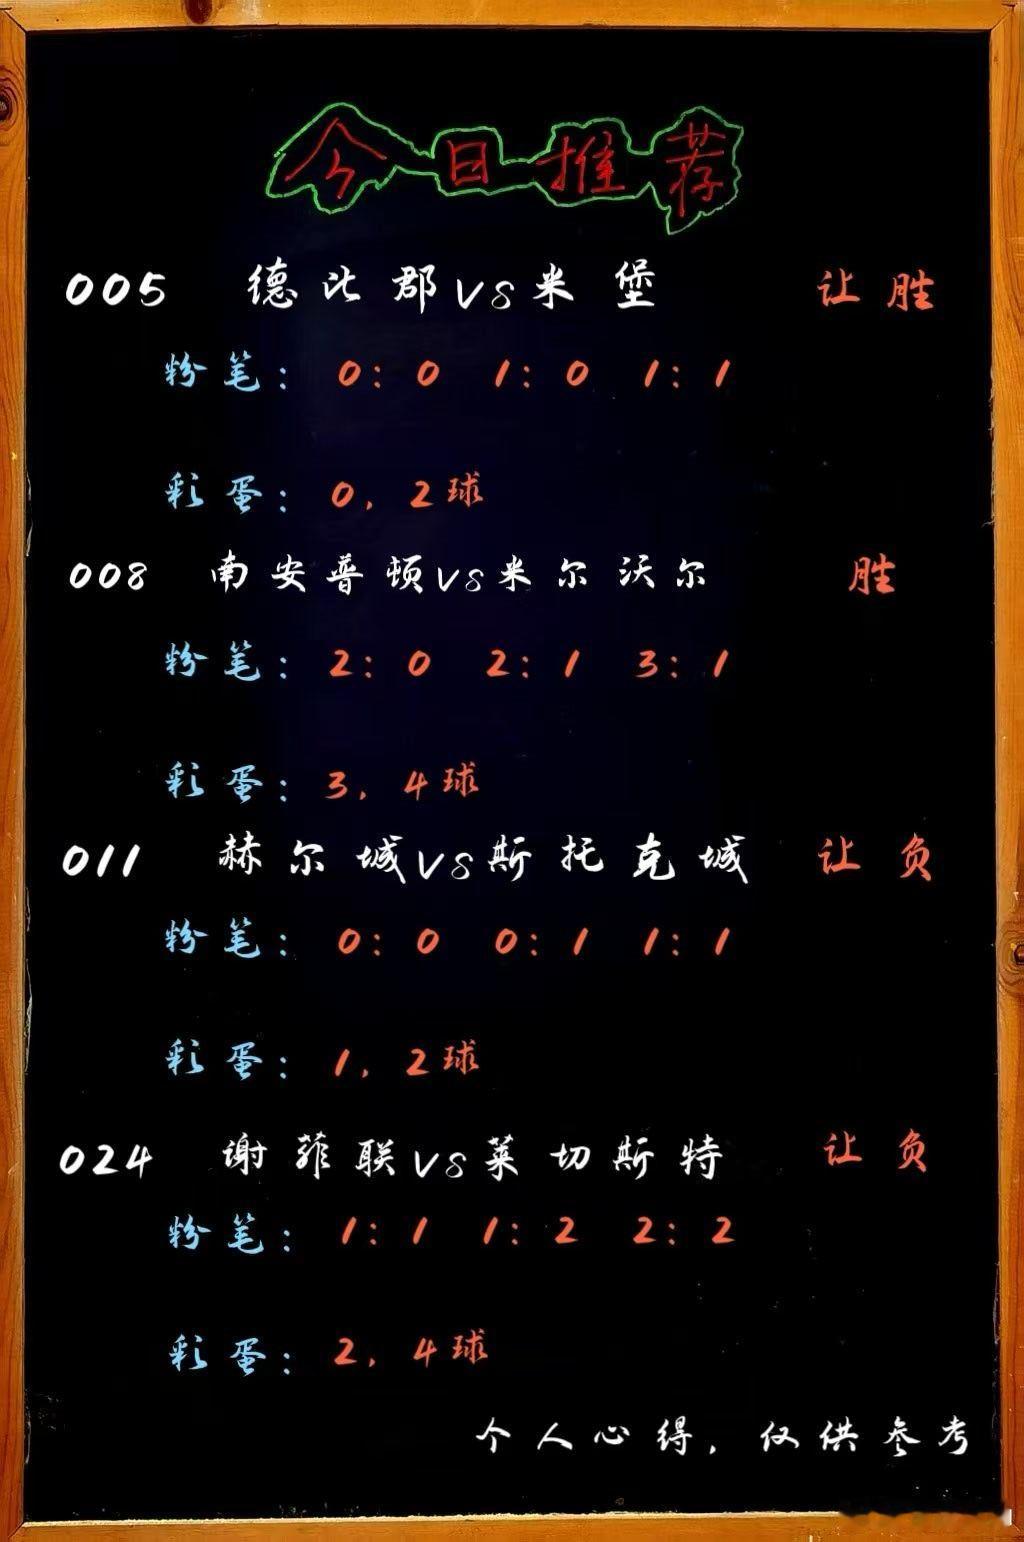 今日推荐
005 德比郡vs米堡 让胜
粉笔：0：0 1：0 1：1
彩蛋：0，2球
008 南安普顿vs米尔沃尔 胜
粉笔：2：0 2：1 3：1
彩蛋：3，4球
011 赫尔城vs斯托克城 让负
粉笔：0：0 0：1 1：1
彩蛋：1，2球
024 谢菲联vs莱切斯特 让负
粉笔：1：1 1：2 2：2
彩蛋：2，4球
个人心得，仅供参考